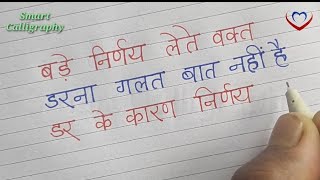 Smart
Calligraphy
बड़े निर्णय लेते वक्त
डरना गलत बात नहीं है
डर के कारण निर्णय